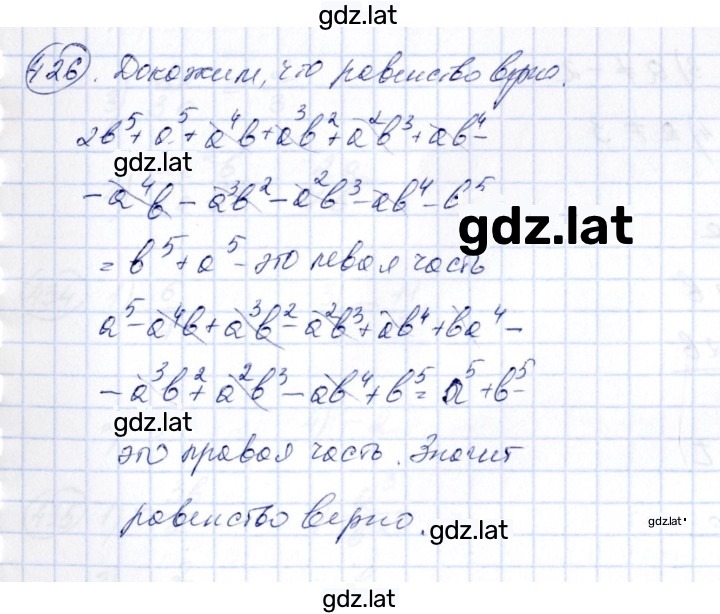 gdz.lat
426. Докажем, что равенство верно.
2b⁵ + a⁵ + a⁴b + a³b² + a²b³ + ab⁴ -
gdz.lat
- a⁴b - a³b² - a²b³ - ab⁴ - b⁵
gdz.lat
= b⁵ + a⁵ - это левая часть
a⁵ - a⁴b + a³b² - a²b³ + ab⁴ + ba⁴ -
- a³b² + a²b³ - ab⁴ + b⁵ = a⁵ + b⁵ -
gdz.lat
это правая часть. Значит
равенство верно.
gdz.lat
gdz.lat
gdz.lat